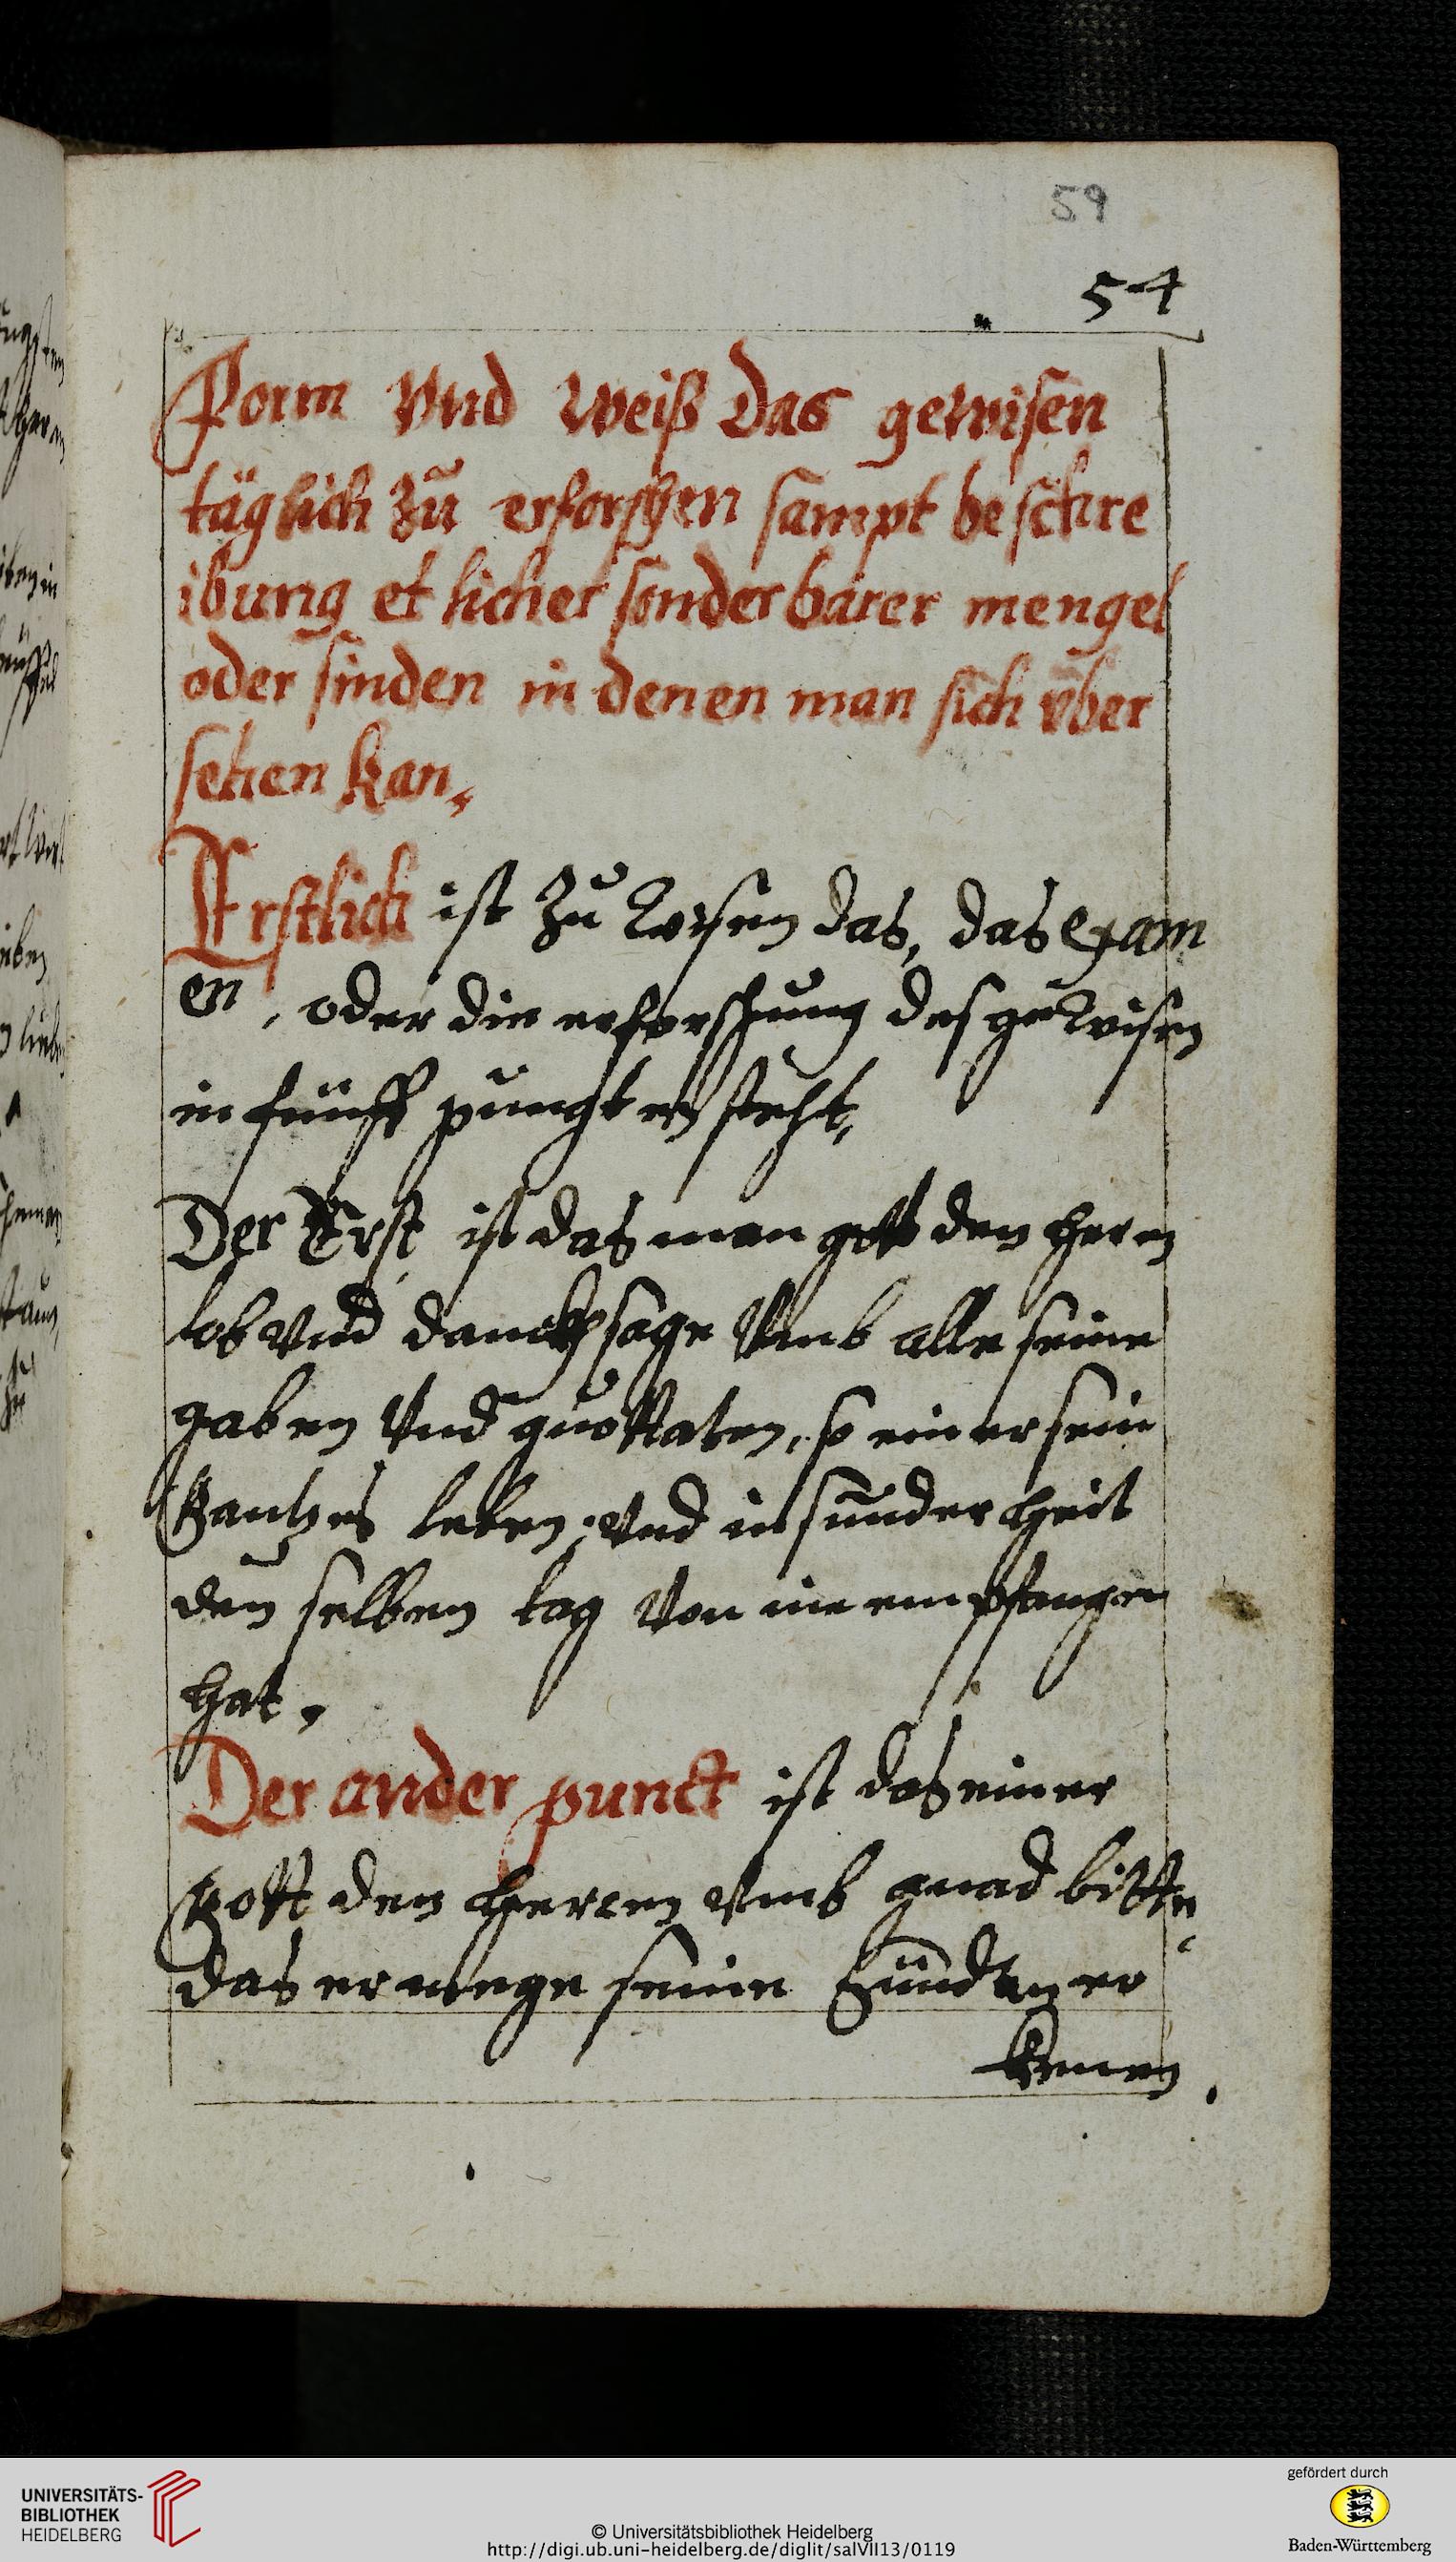 59
54
Form Vnd Weiß das gewisen
täglich zů erforschen sampt beschre
ibung etlicher sonderbarer mengel
oder sinden in denen man sich vber
sehen kan,
Erstlich ist zů wisen das, das Exam
en, oder die erforschung des gewisen
in fünff pungten steht,
Der Erst ist das man gott den heren
lob vnd danckh sage Vmb alle seine
gaben Vnd guottaten, so einer sein
Gantzes leben, vnd in sunderheit
den selben tag Von im empfangen
hat,
Der ander punct ist das einer
Gott den herren Vmb gnad bitte
das er mege seine Sünden er
kenen
UNIVERSITÄTS-
BIBLIOTHEK
HEIDELBERG
© Universitätsbibliothek Heidelberg
http://digi.ub.uni-heidelberg.de/diglit/salVII13/0119
gefördert durch
Baden-Württemberg